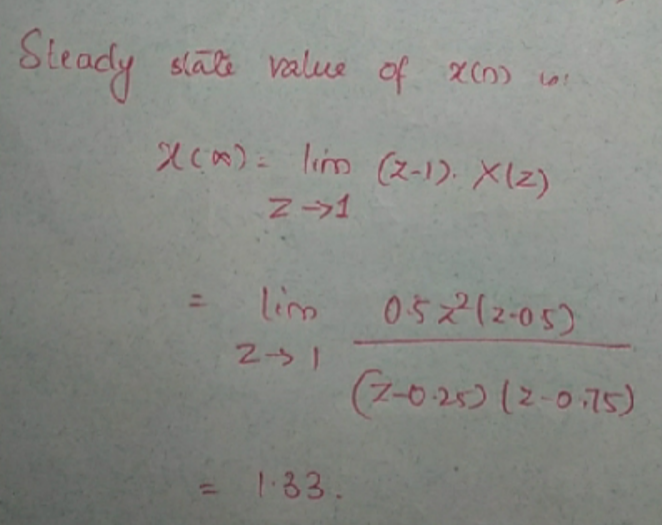 Steady state value of x(n) is:
x(∞) = lim (z-1). X(z)
z→1
= lim 0.5 z²(z-0.5)
z→1 (z-0.25) (z-0.75)
= 1.33.